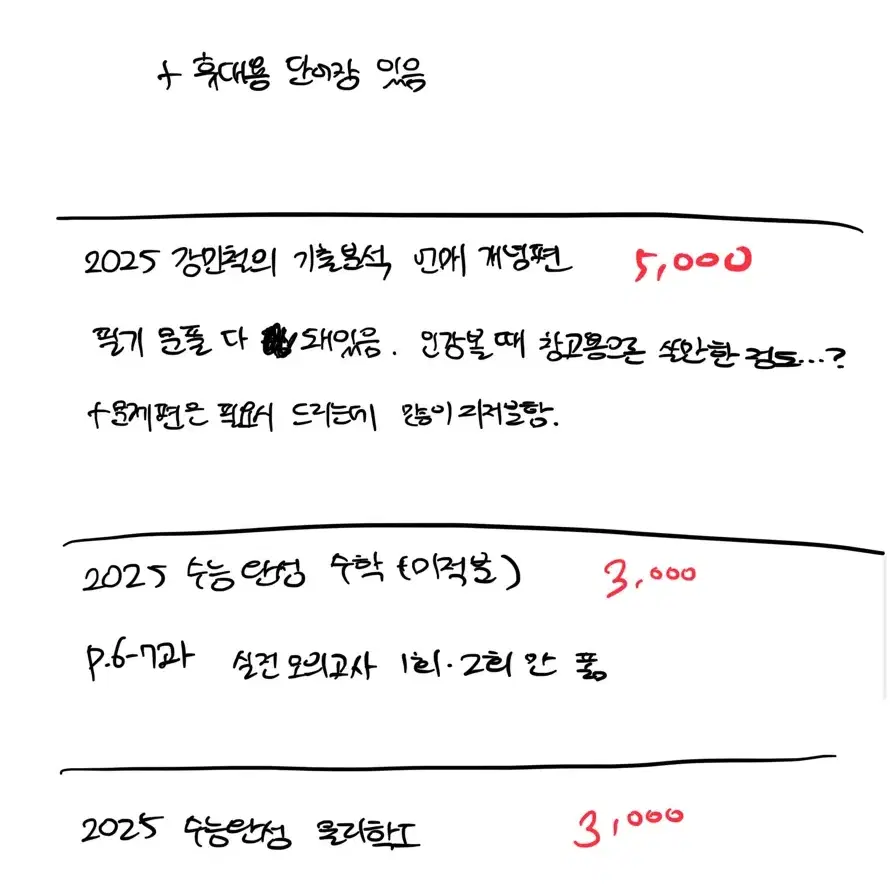 + 휴대용 단어장 있음
2025 강민철의 기출분석, 언매 개념편 5,000
필기 문풀 다 돼있음. 인강볼 때 참고용으론 쏘완한 정도...?
+문제편은 필요시 드리는데 많이 지저분함.
2025 수능완성 수학 (미적분) 3,000
p.6-7과 실전모의고사 1회·2회 만 풂
2025 수능완성 물리학I 3,000